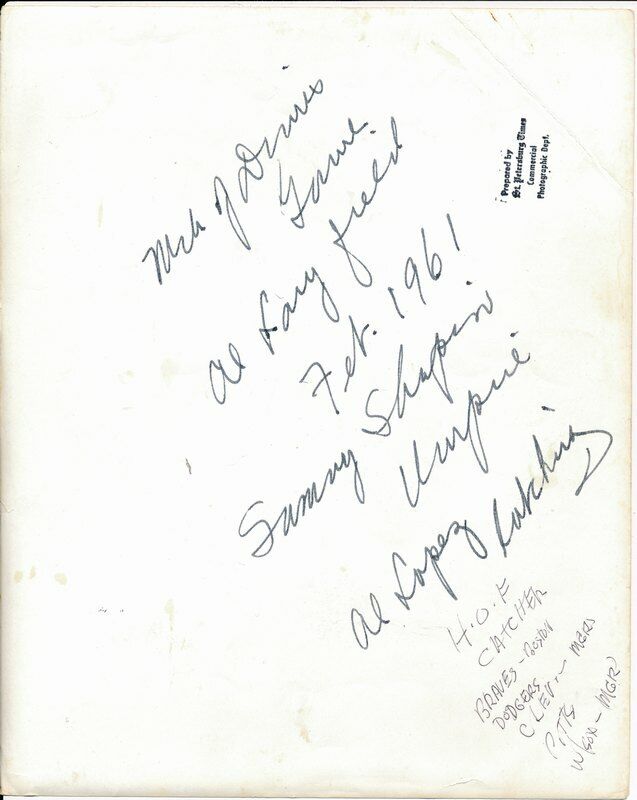 Mch of Dimes
Game
Al Lang field
Feb. 1961
Sammy Shapiro
Umpire
Al Lopez Catching
H.O.F
CATCHER
BRAVES - BOSTON
DODGERS
CLEV. - MGR
PITTS
W/SOX - MGR
Prepared by
St. Petersburg Times
Commercial
Photographic Dept.